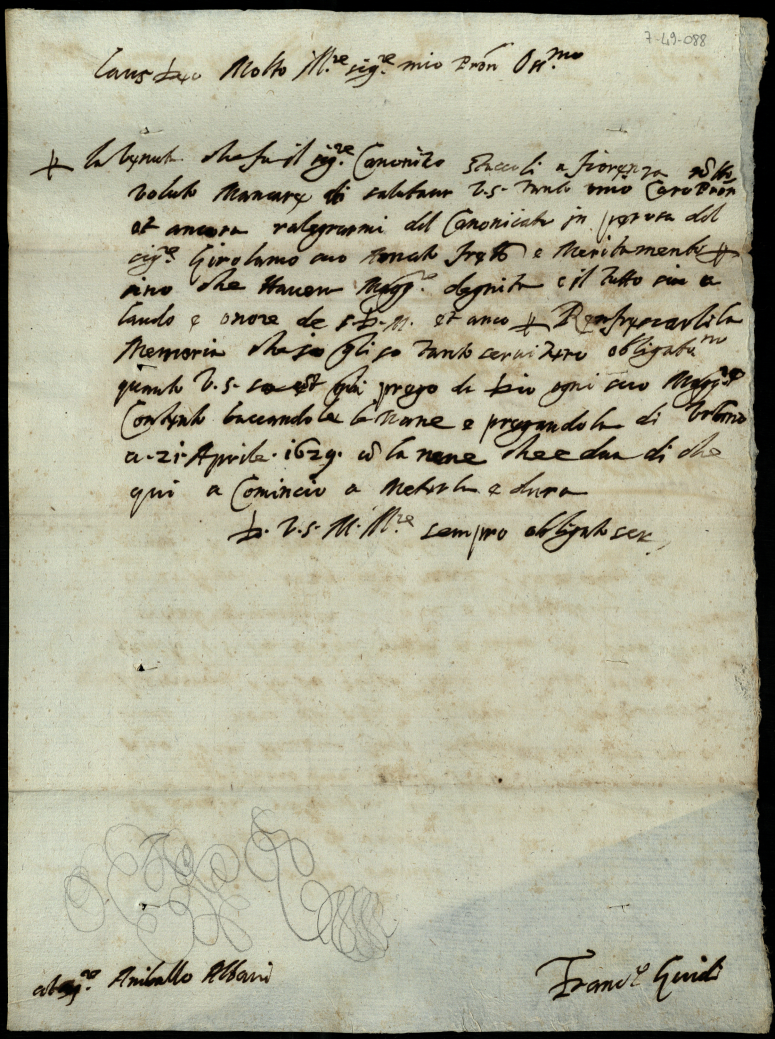 7-49-088
Laus Deo Molto Ill.re sig.re mio Prōn Oss.mo
la venuta che fa il sig.re Canonico Staccoli a fiorenza nō ho
voluto Mancare di salutaer V.S. tanto mio Caro Prōn
et ancora ralegrarmi del Canonicato in persona del
sig.re Girolamo suo fratō e Meritamente
sino che Havera Magg.re degnita e il tutto sia a
laudo e onore de S.D.M. et anco Renfrescarli la
Memoria che io gli so tanto servitore obligatis.mo
quanto V.S. prego da Dio ogni suo Magg.re
Contento basciandole le Mane e pregandola di Vrbino
a. 21. Aprile. 1629. cō la neve che e dua di che
qui a Comincio a Meterla e dura
D. V.S. M. Ill.re sempro obligato ser
al sig.re Aniballo Albani
Franc.o Guidi